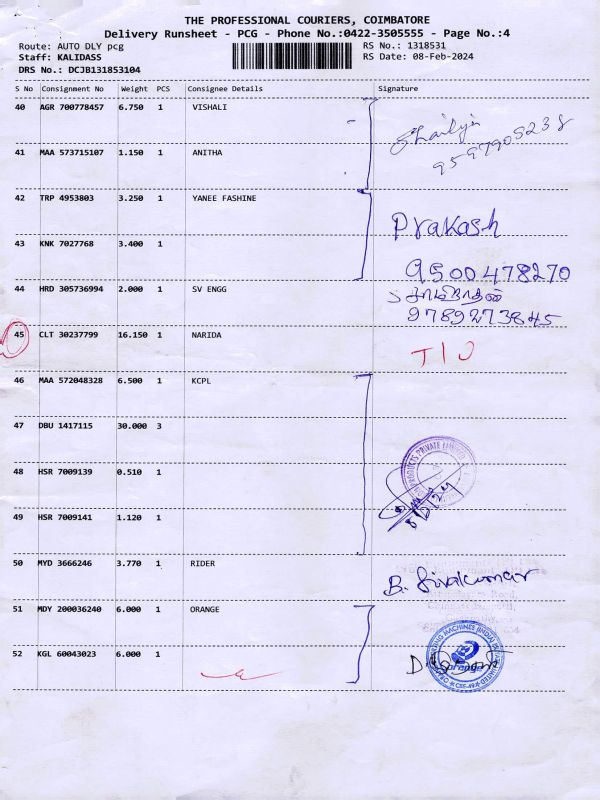 THE PROFESSIONAL COURIERS, COIMBATORE
Delivery Runsheet - PCG - Phone No.:0422-3505555 - Page No.:4
Route: AUTO DLY pcg RS No.: 1318531
Staff: KALIDASS RS Date: 08-Feb-2024
DRS No.: DCJB131853104
S No Consignment No Weight PCS Consignee Details Signature
40 AGR 700778457 6.750 1 VISHALI
41 MAA 573715107 1.150 1 ANITHA 9597905238
42 TRP 4953803 3.250 1 YANEE FASHINE Prakash
43 KNK 7027768 3.400 1 9500478270
44 HRD 305736994 2.000 1 SV ENGG
9789273845
45 CLT 30237799 16.150 1 NARIDA
46 MAA 572048328 6.500 1 KCPL
47 DBU 1417115 30.000 3
48 HSR 7009139 0.510 1
49 HSR 7009141 1.120 1 8/2/24
50 MYD 3666246 3.770 1 RIDER B. Sivakumar
51 MDY 200036240 6.000 1 ORANGE
52 KGL 60043023 6.000 1